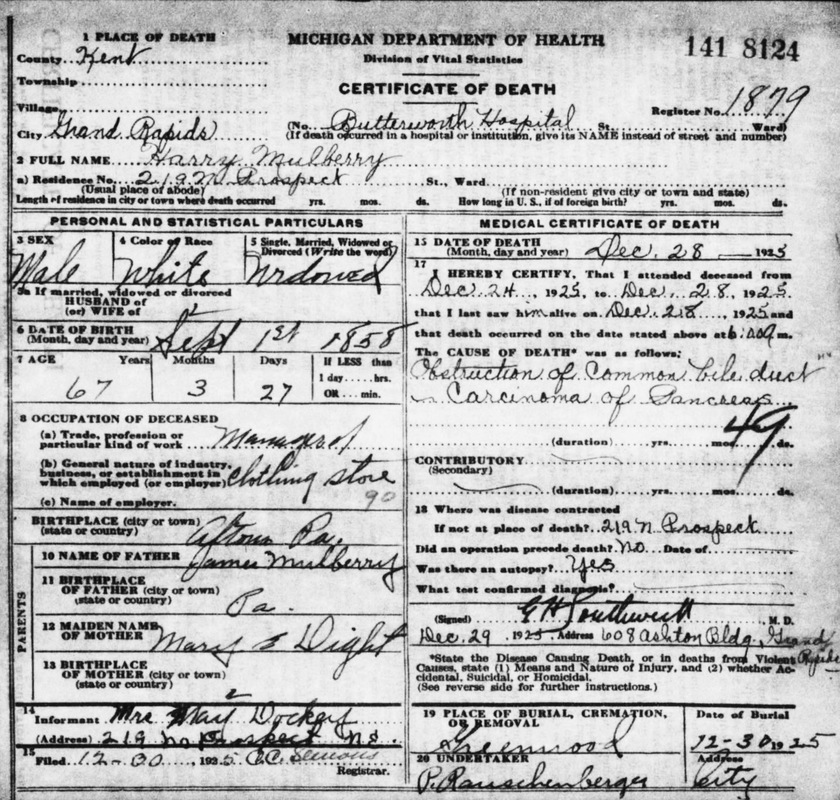 1 PLACE OF DEATH
County Kent
Township
Village
City Grand Rapids
MICHIGAN DEPARTMENT OF HEALTH
Division of Vital Statistics
CERTIFICATE OF DEATH
141 8124
Register No. 1879
(No. Butterworth Hospital St. Ward)
(If death occurred in a hospital or institution, give its NAME instead of street and number)
2 FULL NAME Harry Mulberry
a) Residence No. 219 N Prospect St., Ward.
(Usual place of abode) (If non-resident give city or town and state)
Length of residence in city or town where death occurred yrs. mos. ds. How long in U. S., if of foreign birth? yrs. mos. ds.
PERSONAL AND STATISTICAL PARTICULARS
3 SEX 4 Color or Race 5 Single, Married, Widowed or
Divorced (Write the word)
Male White Widowed
5a If married, widowed or divorced
HUSBAND of
(or) WIFE of
2
6 DATE OF BIRTH
(Month, day and year) Sept 1st 1858
7 AGE Years Months Days If LESS than
1 day hrs.
OR min.
67 3 27
8 OCCUPATION OF DECEASED
(a) Trade, profession or
particular kind of work Manager of
(b) General nature of industry,
business, or establishment in
which employed (or employer) Clothing store
(c) Name of employer. 90
BIRTHPLACE (city or town)
(state or country) Pa.
PARENTS
10 NAME OF FATHER James Mulberry
11 BIRTHPLACE
OF FATHER (city or town)
(state or country) Pa.
12 MAIDEN NAME
OF MOTHER Mary E Dight
13 BIRTHPLACE
OF MOTHER (city or town)
(state or country)
2
14
Informant Mrs May Dockey
(Address) 219 No Prospect N.S.
15
Filed 12-30 1925 C.C.
Registrar.
MEDICAL CERTIFICATE OF DEATH
15 DATE OF DEATH
(Month, day and year) Dec. 28 1925
17
I HEREBY CERTIFY, That I attended deceased from
Dec 24, 1925, to Dec. 28, 1925
that I last saw him alive on Dec. 28, 1925 and
that death occurred on the date stated above at 6:00 a m.
The CAUSE OF DEATH* was as follows:
Obstruction of Common bile duct
Carcinoma of Pancreas
49
(duration) yrs. mos. ds.
CONTRIBUTORY
(Secondary)
(duration) yrs. mos. ds.
18 Where was disease contracted
If not at place of death? 219 N Prospect
Did an operation precede death? No Date of
Was there an autopsy? Yes
What test confirmed diagnosis?
(Signed) G H Southwick M. D.
Dec. 29 1925 Address 608 Ashton Bldg., Grand
Rapids
*State the Disease Causing Death, or in deaths from Violent
Causes, state (1) Means and Nature of Injury, and (2) whether Ac-
cidental, Suicidal, or Homicidal.
(See reverse side for further instructions.)
19 PLACE OF BURIAL, CREMATION,
OR REMOVAL
Greenwood
Date of Burial
12-30 1925
20 UNDERTAKER
P. Rauschenberger
Address
City